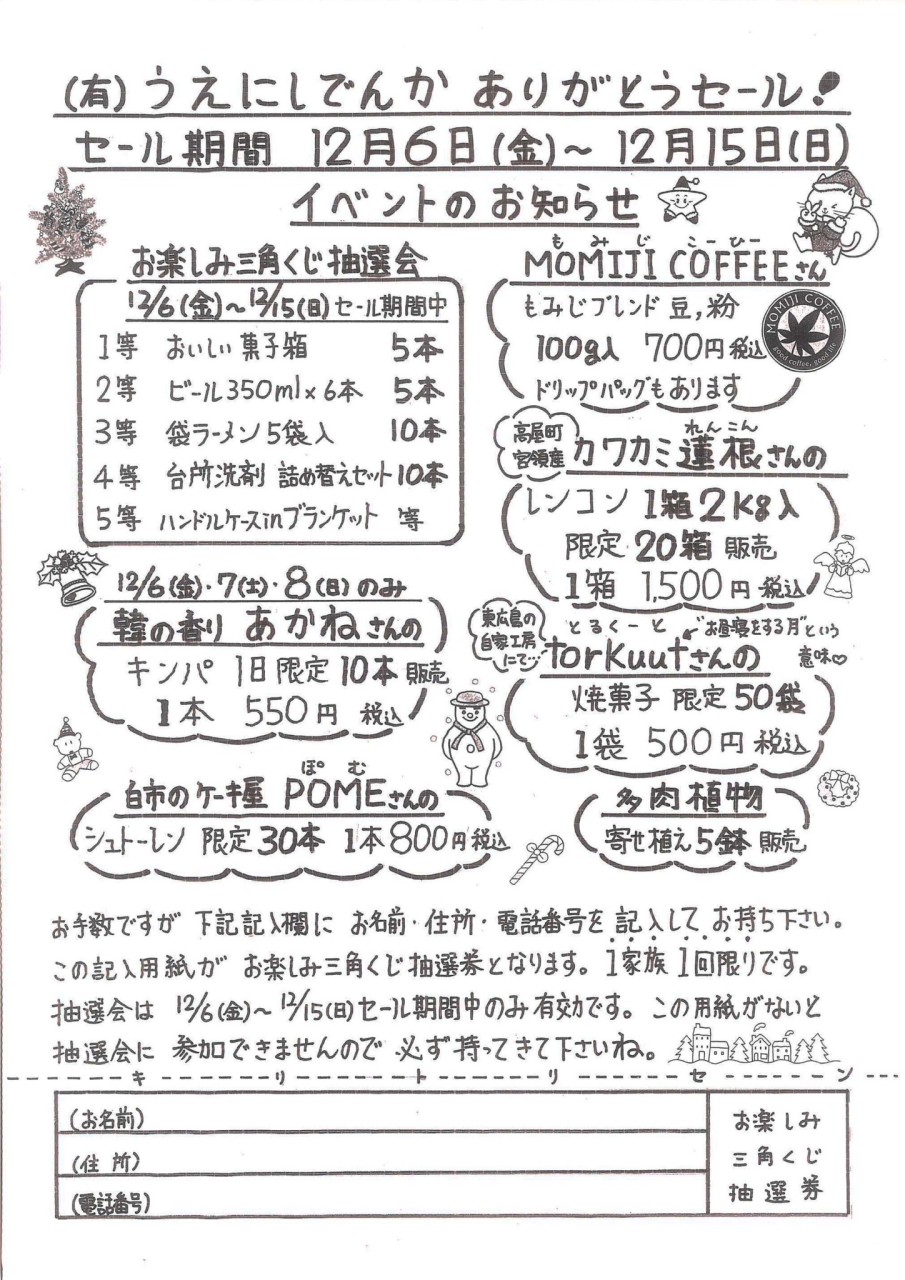 (有)うえにしでんか ありがとうセール!
セール期間 12月6日(金)～12月15日(日)
イベントのお知らせ
お楽しみ三角くじ抽選会
12/6(金)～12/15(日)セール期間中
1等 おいしい菓子箱 5本
2等 ビール350ml×6本 5本
3等 袋ラーメン5袋入 10本
4等 台所洗剤 詰め替えセット 10本
5等 ハンドルケースinブランケット 等
12/6(金)・7(土)・8(日)のみ
韓の香り あかねさんの
キンパ 1日限定10本販売
1本 550円 税込
ぽむ
白市のケーキ屋 POMEさんの
シュトーレン 限定30本 1本800円税込
もみじ こーひー
MOMIJI COFFEEさん
もみじブレンド 豆,粉
100g入 700円税込
ドリップパッグもあります
MOMIJI COFFEE
good coffee, good life
高屋町
宮領産
れんこん
カワカミ蓮根さんの
レンコン 1箱2Kg入
限定 20箱 販売
1箱 1,500円税込
東広島の
自家工房
にて…
とるくーと
"お昼寝をする月"という
意味♡
torkuutさんの
焼菓子 限定50袋
1袋 500円 税込
多肉植物
寄せ植え5鉢 販売
お手数ですが 下記記入欄に お名前・住所・電話番号を 記入して お持ち下さい。
この記入用紙が お楽しみ三角くじ抽選券となります。1家族1回限りです。
抽選会は 12/6(金)～12/15(日)セール期間中のみ有効です。この用紙がないと
抽選会に 参加できませんので 必ず持ってきて下さいね。
キリトリセン
(お名前)
(住所)
(電話番号)
お楽しみ
三角くじ
抽選券